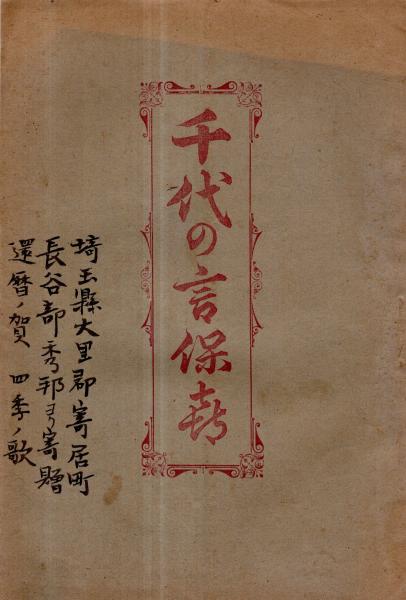 千代の言保㐂
埼玉縣大里郡寄居町
長谷部秀邦ヨリ寄贈
還暦ノ賀 四季ノ歌